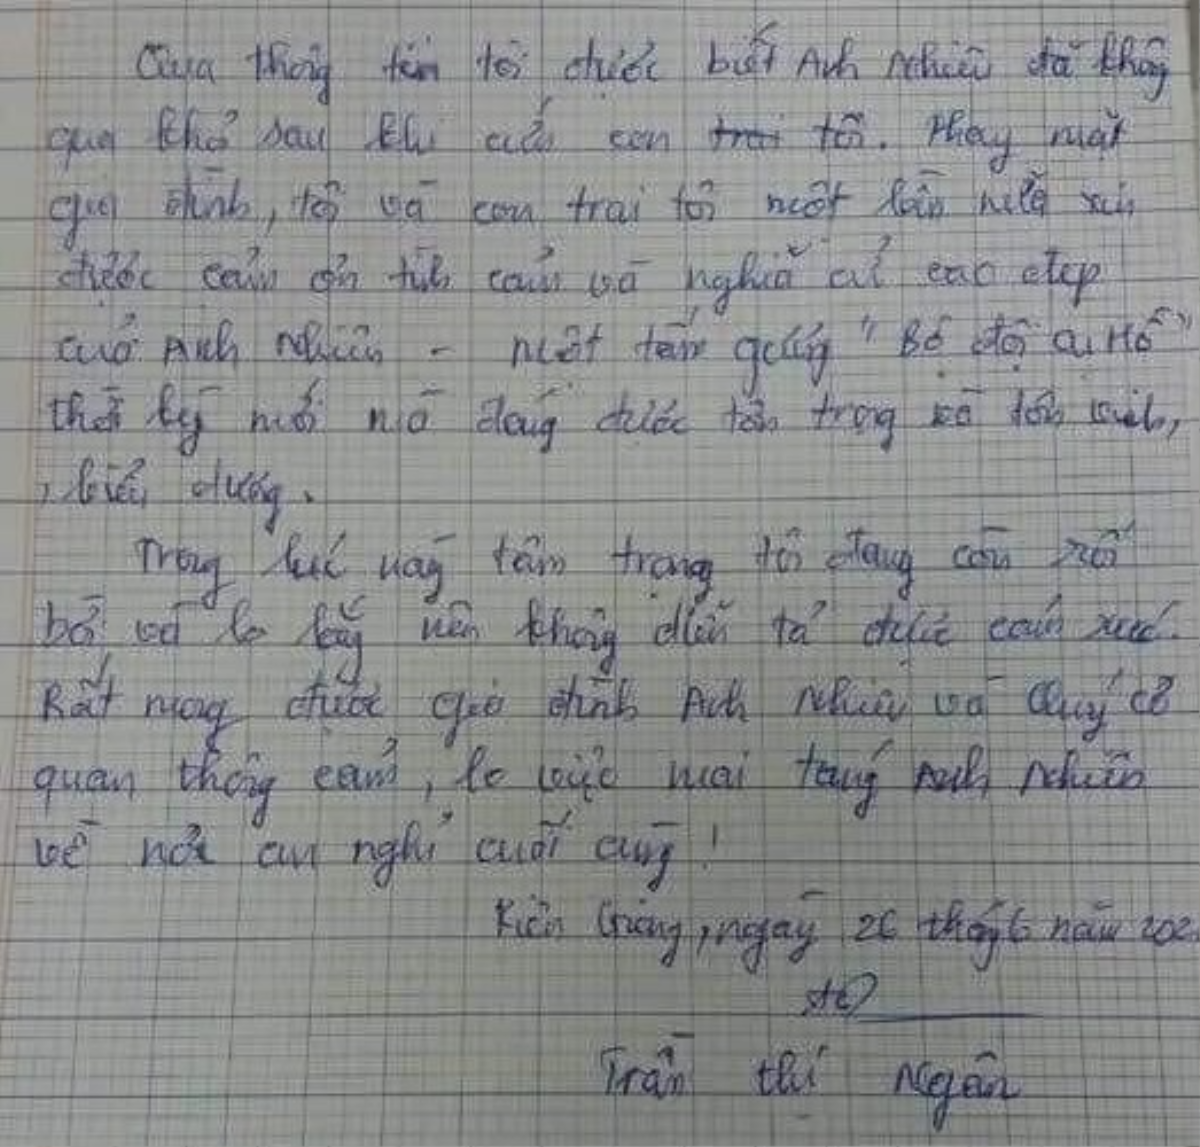 Qua thông tin tôi được biết Anh Nhiên đã không
qua khỏi sau khi cứu con trai tôi. Thay mặt
gia đình, tôi và con trai tôi một lần nữa xin
được cảm ơn tình cảm và nghĩa cử cao đẹp
của Anh Nhiên - một tấm gương "Bộ đội cụ Hồ"
thời kỳ mới mà đáng được tôn trọng và tôn vinh,
, biểu dương.
Trong lúc này tâm trạng tôi đang còn rối
bời và lo lắng nên không diễn tả được cảm xúc.
Rất mong được gia đình Anh Nhiên và Quý cơ
quan thông cảm, lo việc mai táng Anh Nhiên
về nơi an nghỉ cuối cùng!
Kiên Giang, ngày 26 tháng 6 năm 202
Trần thị Ngân